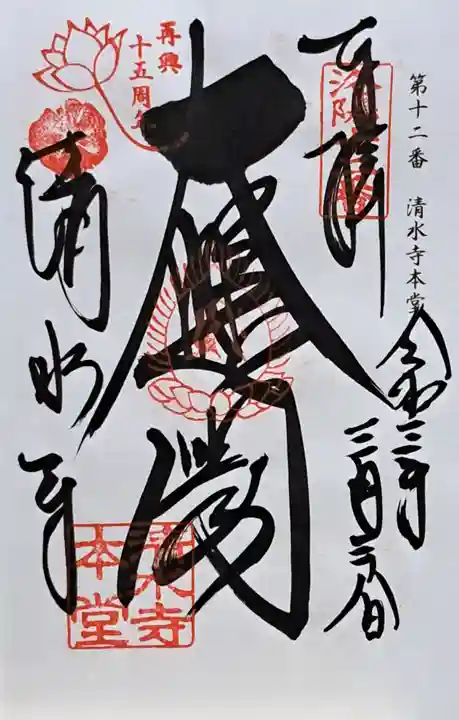 第十二番 清水寺本堂
奉拝
令和三年
三月二日
大悲閣
清水寺
再興
十五周年
清水寺
本堂